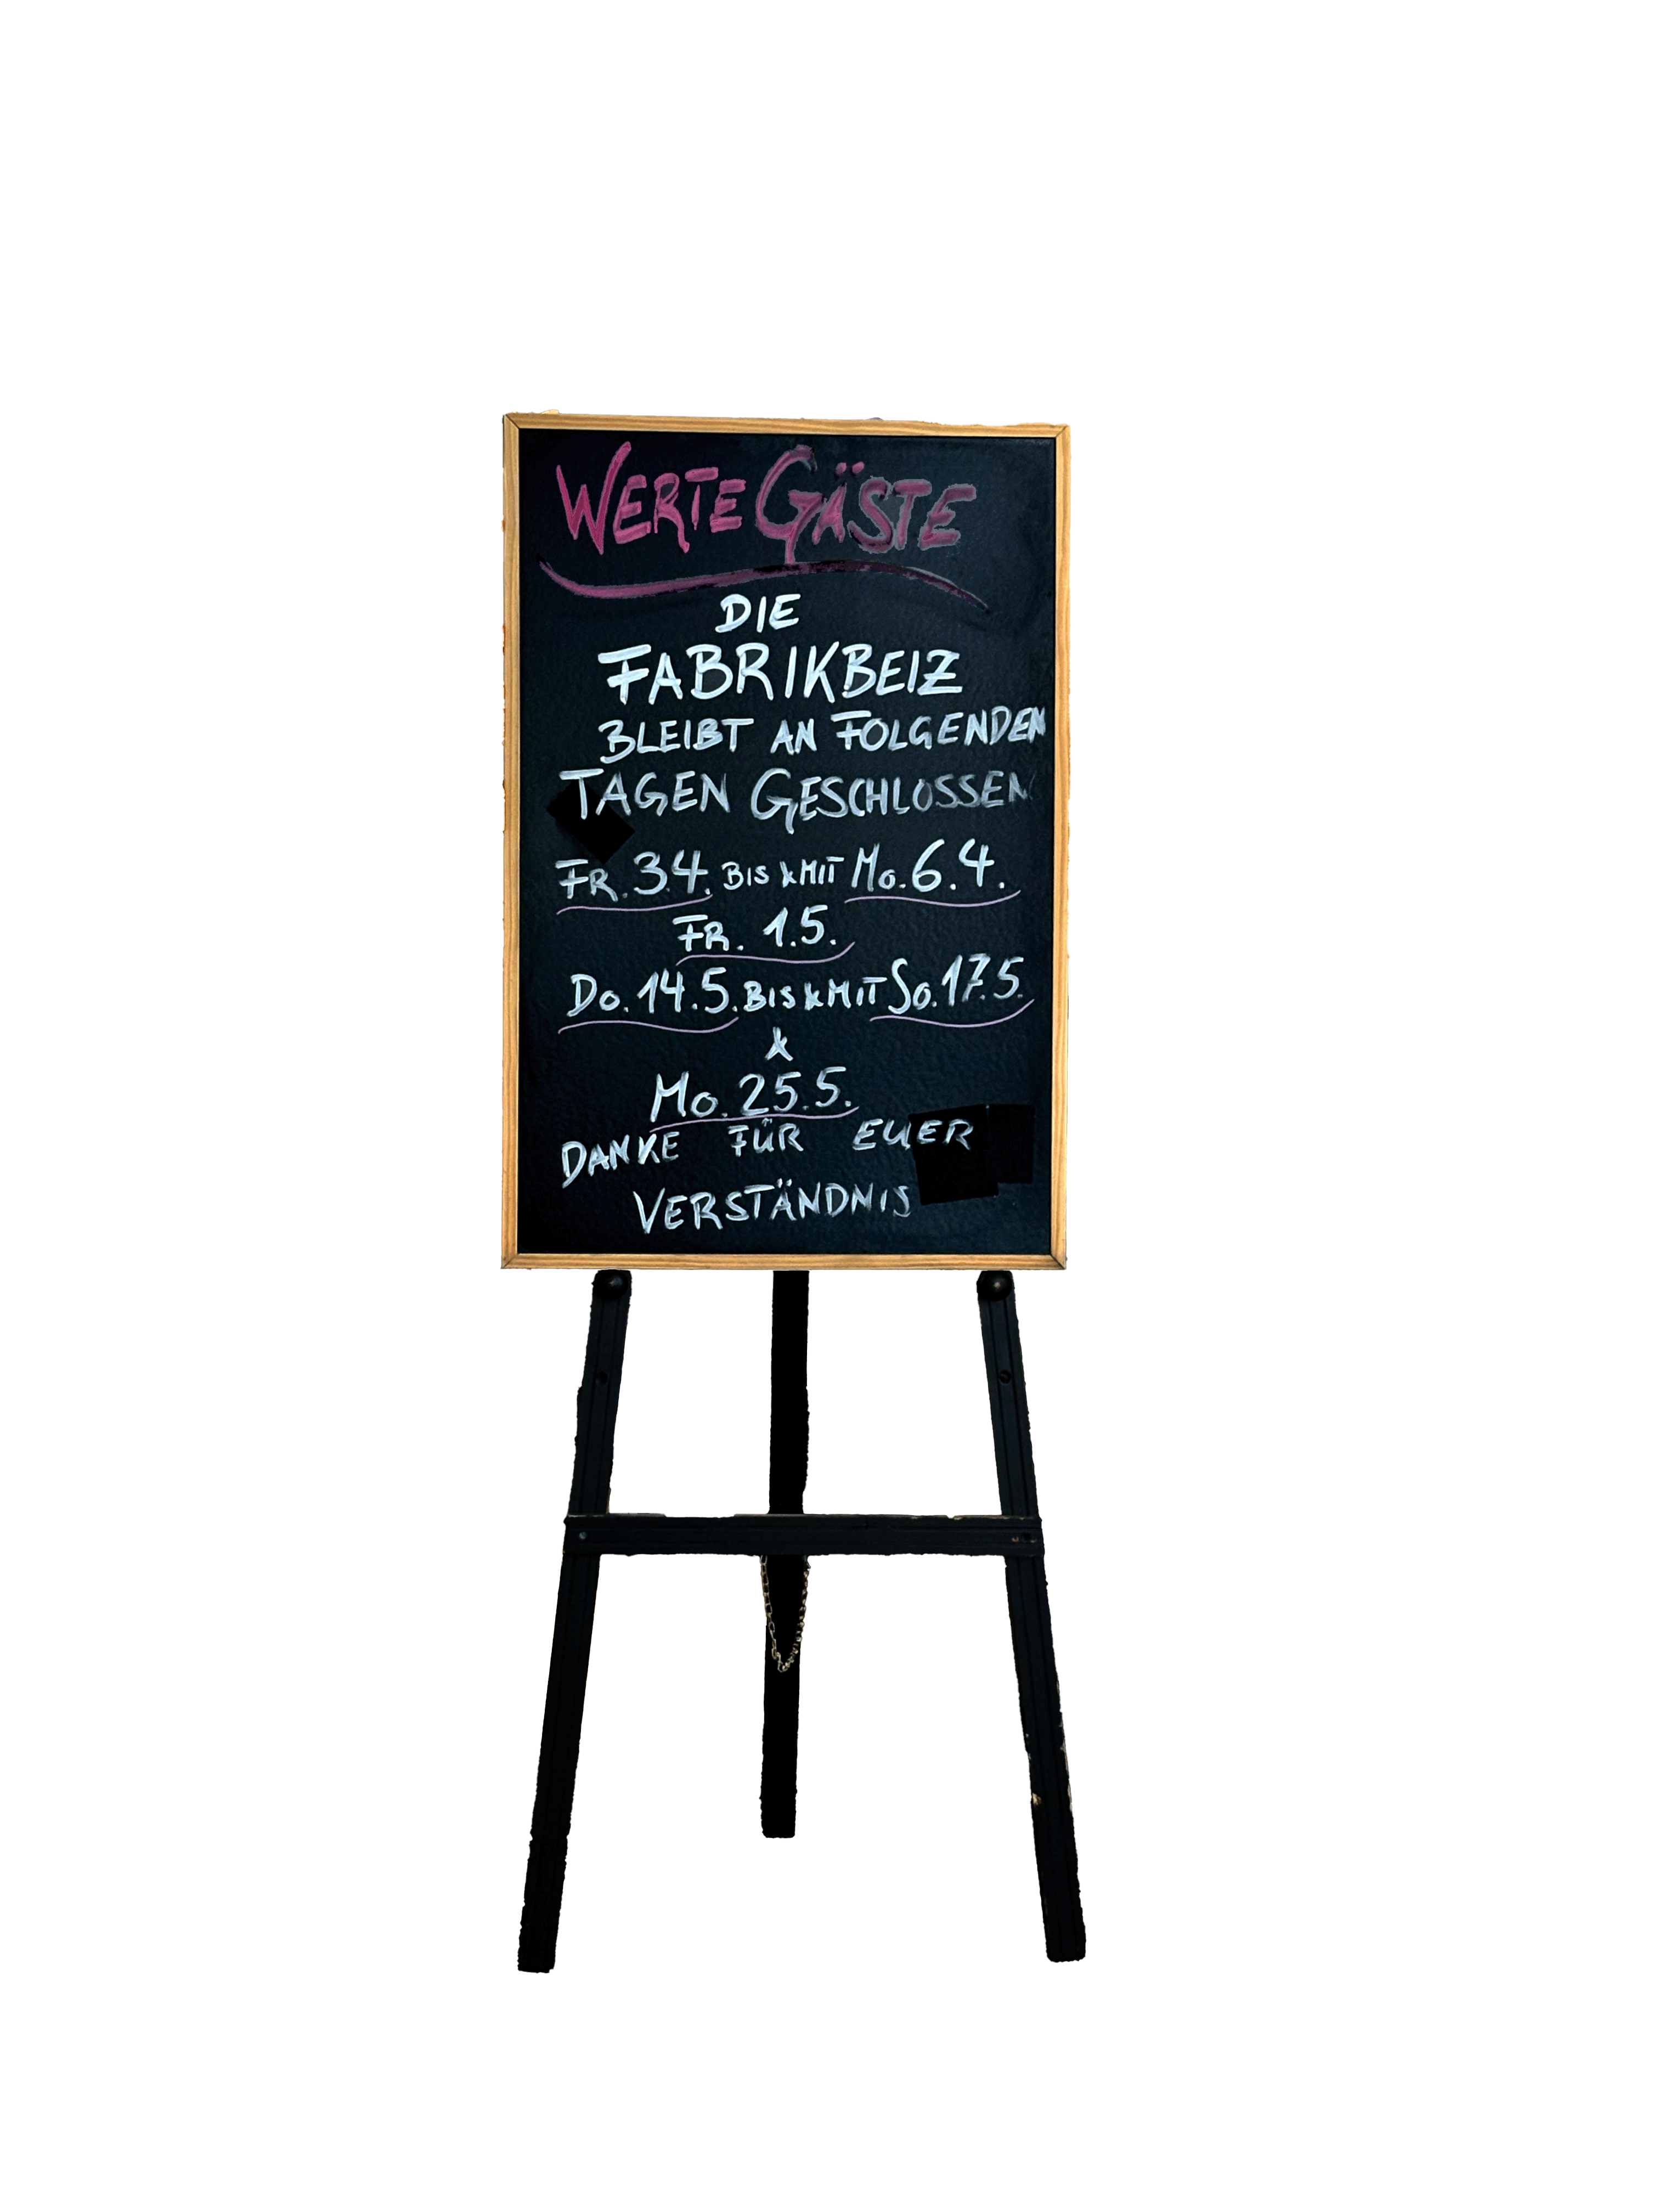 WERTE GÄSTE
DIE
FABRIKBEIZ
BLEIBT AN FOLGENDEN
TAGEN GESCHLOSSEN
FR. 3.4. BIS & MIT MO. 6.4.
FR. 1.5.
DO. 14.5. BIS & MIT SO. 17.5.
&
MO. 25.5.
DANKE FÜR EUER
VERSTÄNDNIS